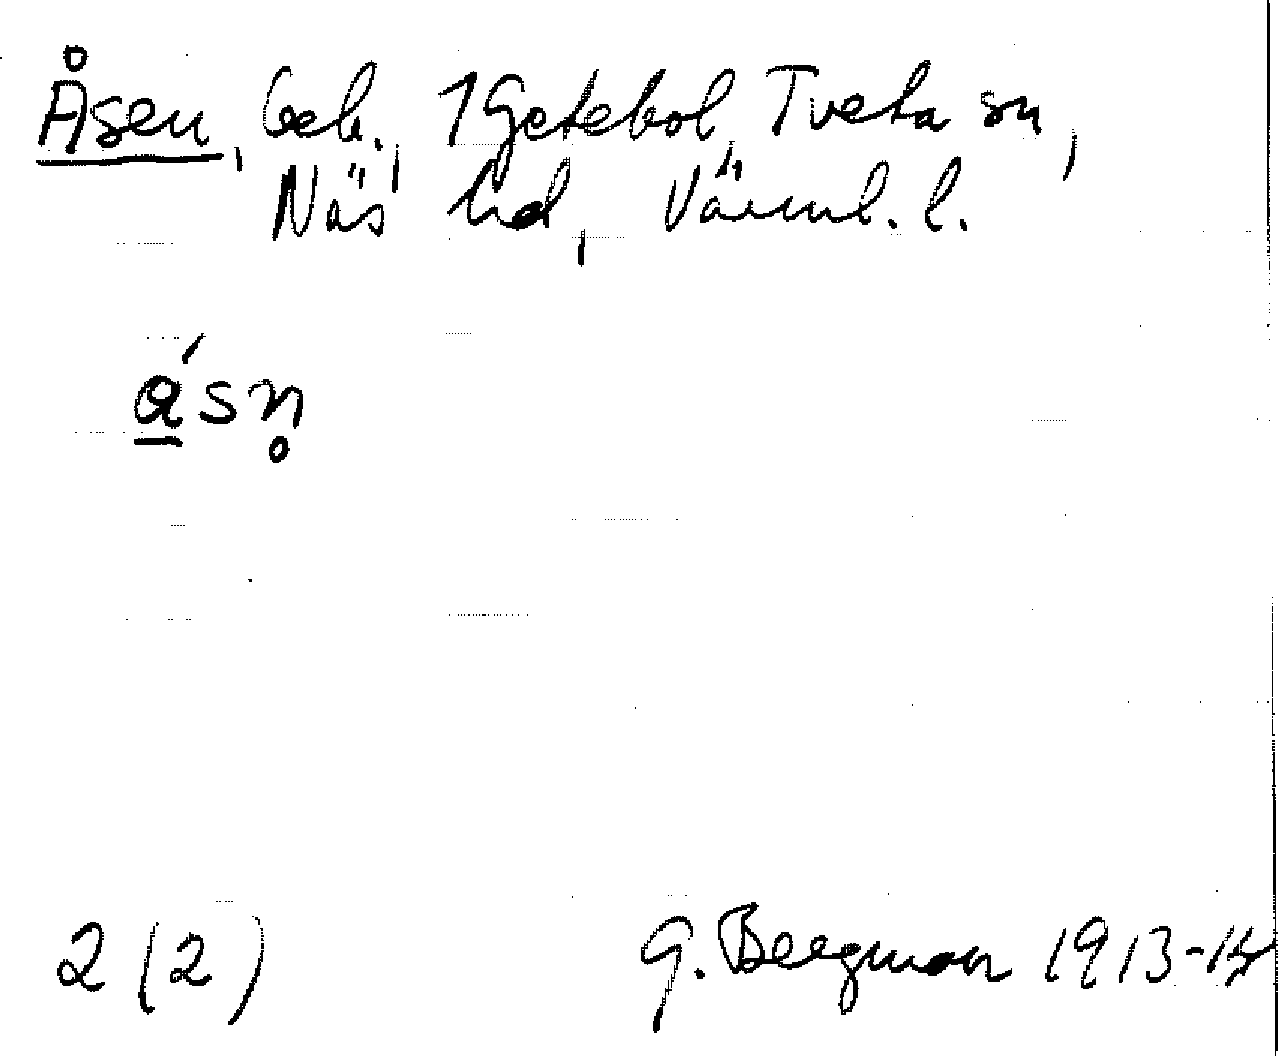 Åsen, beb., 1 Getebol, Tveta sn,
Näs hd, Värml. l.
a̲´sn̥
2 (2)
G. Bergman 1913-14